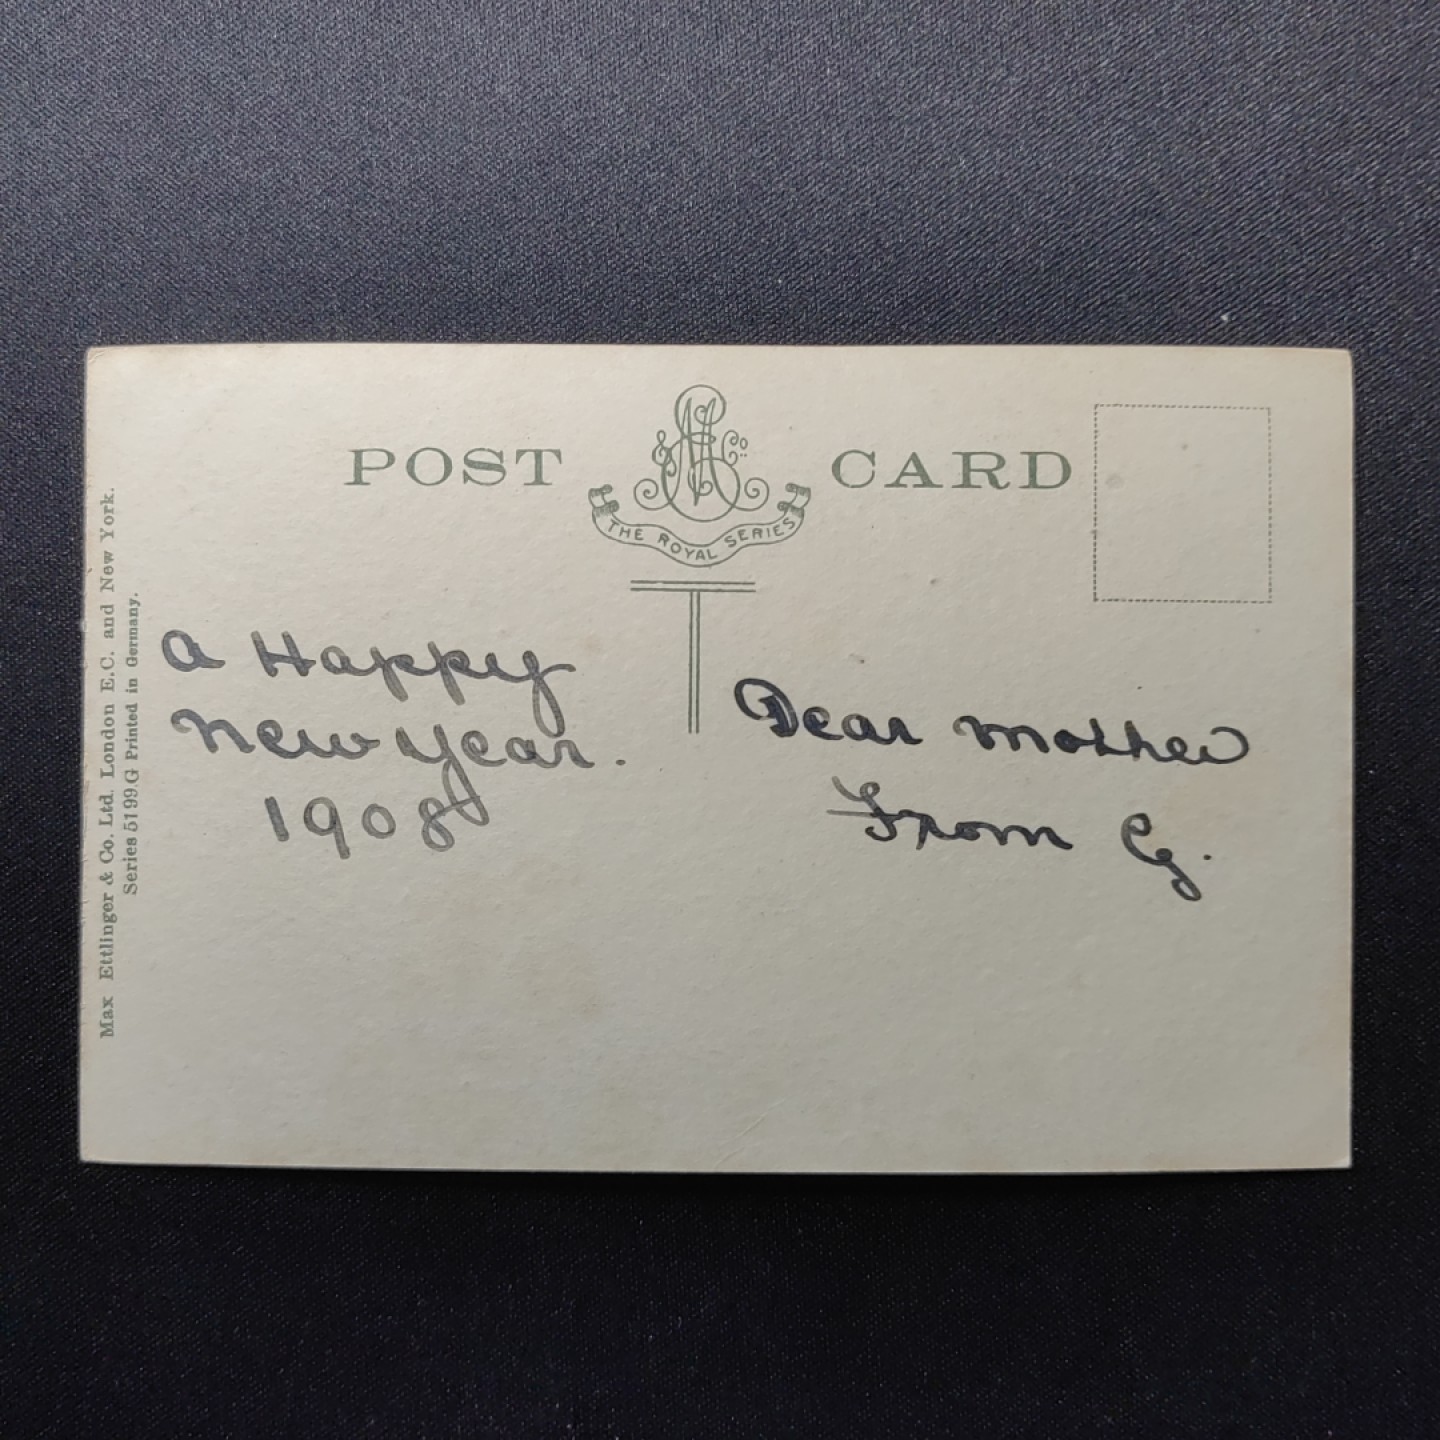 POST CARD
& Co
THE ROYAL SERIES
Max Ettlinger & Co. Ltd. London E.C. and New York.
Series 5199.G Printed in Germany.
a Happy
New Year.
1908
Dear Mother
From